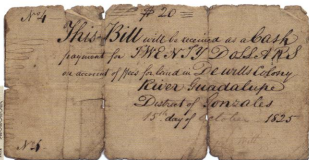 No 4 # 20 =
This Bill will be received as a Cash
payment for TWENTY DOLLARS
on account of fees for land in Dewitts Colony
River Guadalupe
District of Gonzales
15th day of October 1825
No